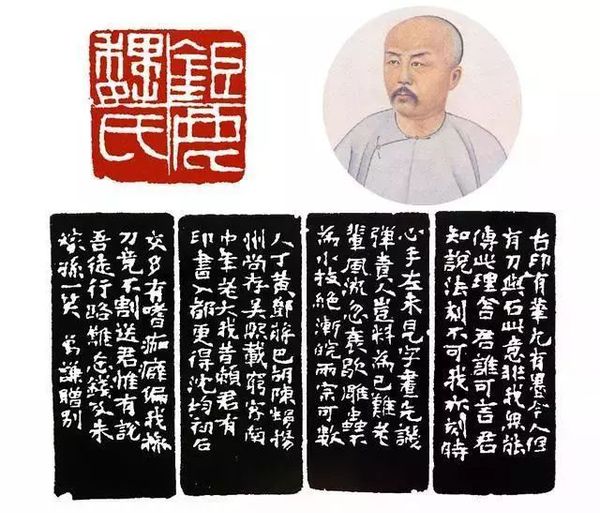 鉅鹿
魏氏
古印有筆尤有墨今人但
有刀與石此意非我無能
傳此理舍君誰可言君
知說法刻不可我亦刻時
心手左未見字畫先譏
彈責人豈料為己難老
輩風流忽衰歇雕蟲
為小技絕漸皖兩宗可數
人丁黃鄭蔣巴胡陳揚
州尚存吳熙載窮客南
中年老大我昔願君有
印書入都更得沈均初石
交多有嗜痂癖偏我操
刀竟不割送君惟有說
吾徒行路難忘錢及朱
稼孫一笑 撝謙贈別